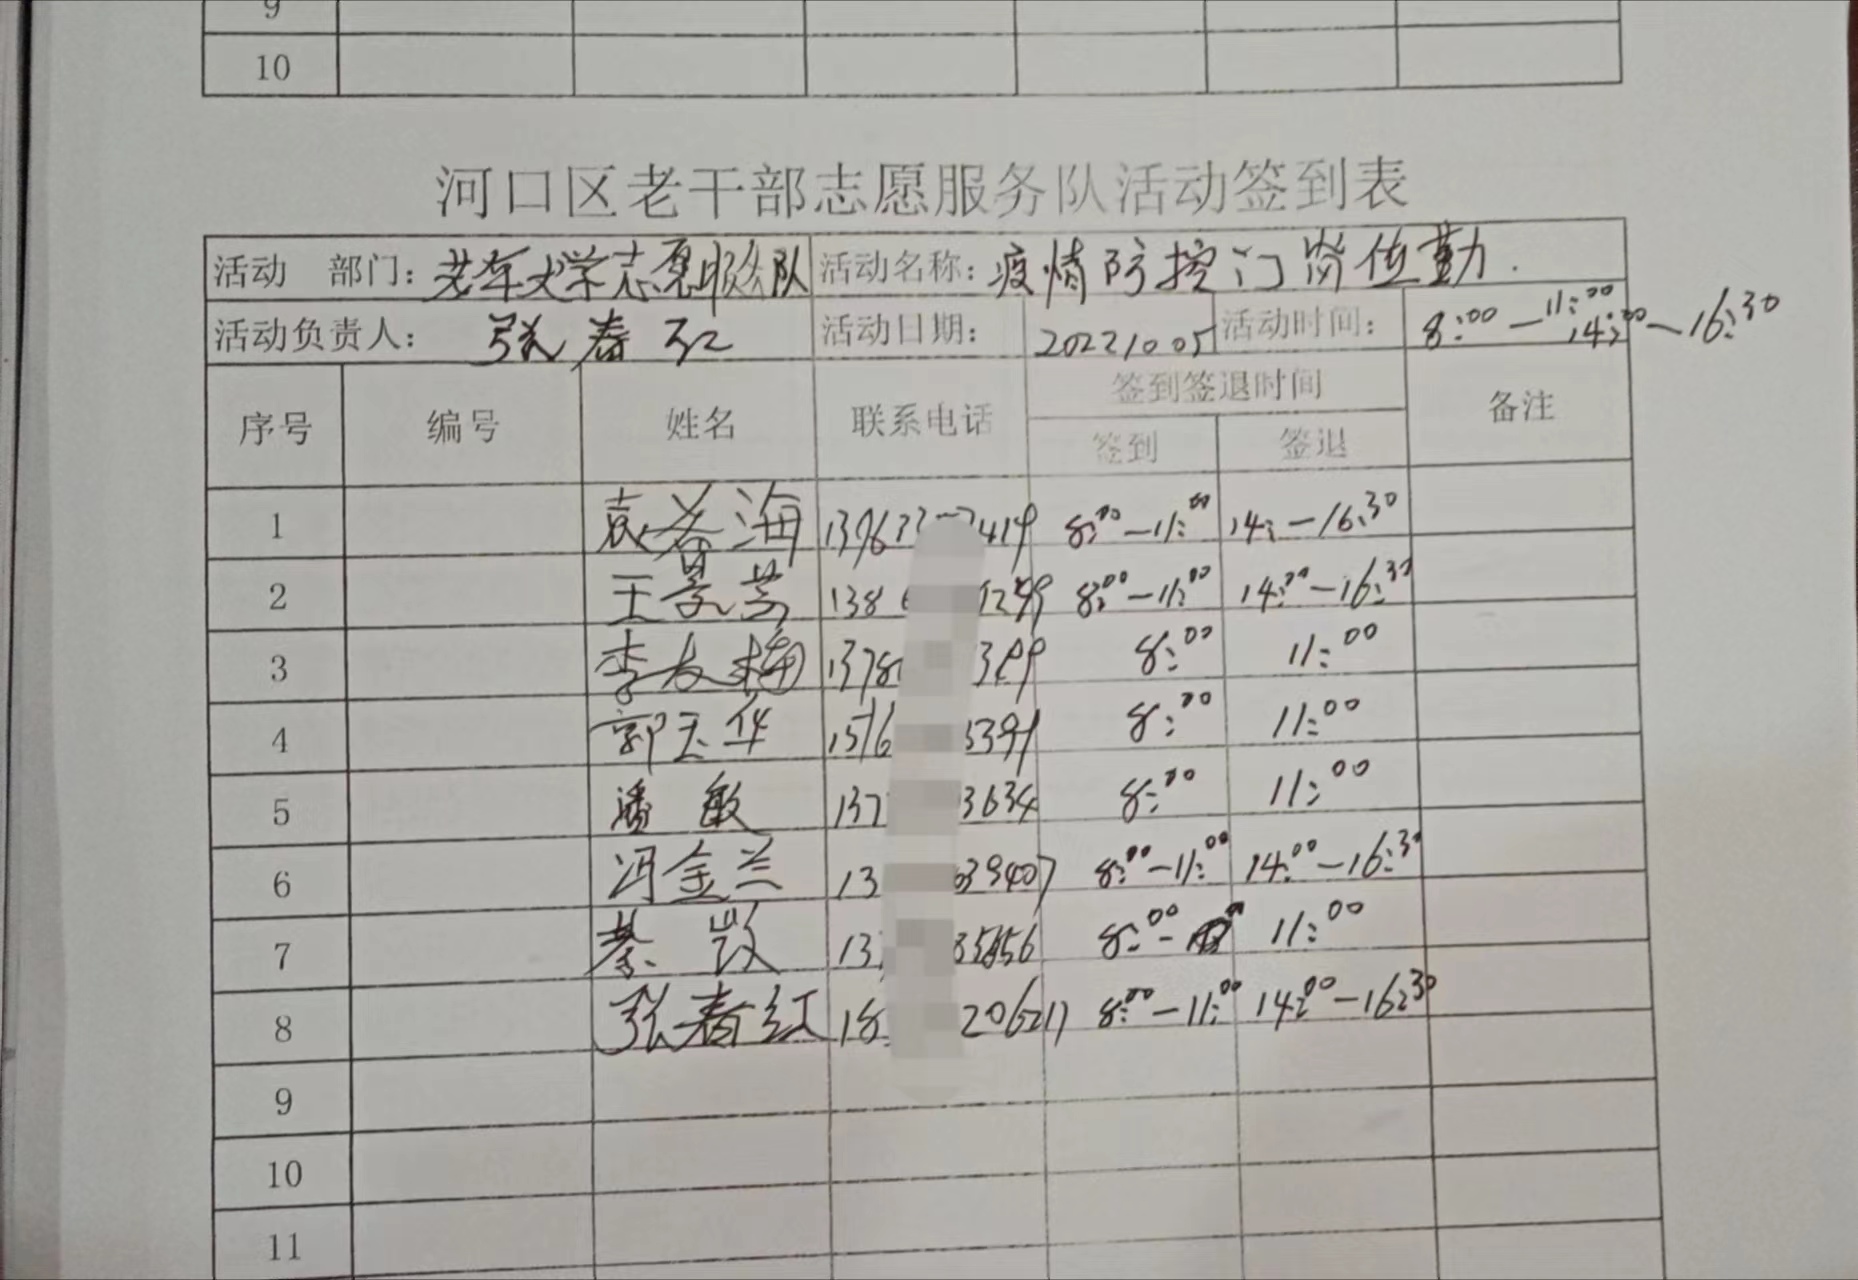 9
10
河口区老干部志愿服务队活动签到表
活动 部门：老年大学志愿服务队 活动名称：疫情防控门岗值勤.
活动负责人： 张春红 活动日期： 20221005 活动时间： 8:00-11:00 14:00-16:30
序号 编号 姓名 联系电话 签到签退时间 备注
签到 签退
1 袁春海 8:00-11:00 14:-16:30
2 王景芸 138 8:00-11:00 14:00-16:30
3 李友梅 1378 8:00 11:00
4 郭玉华 1576 3391 8:00 11:00
5 潘敏 137 3634 8:00 11:00
6 冯金兰 13 39407 8:00-11:00 14:00-16:30
7 綦 13 8:00- 11:00
8 张春红 18 8:00-11:00 14:00-16:30
9
10
11